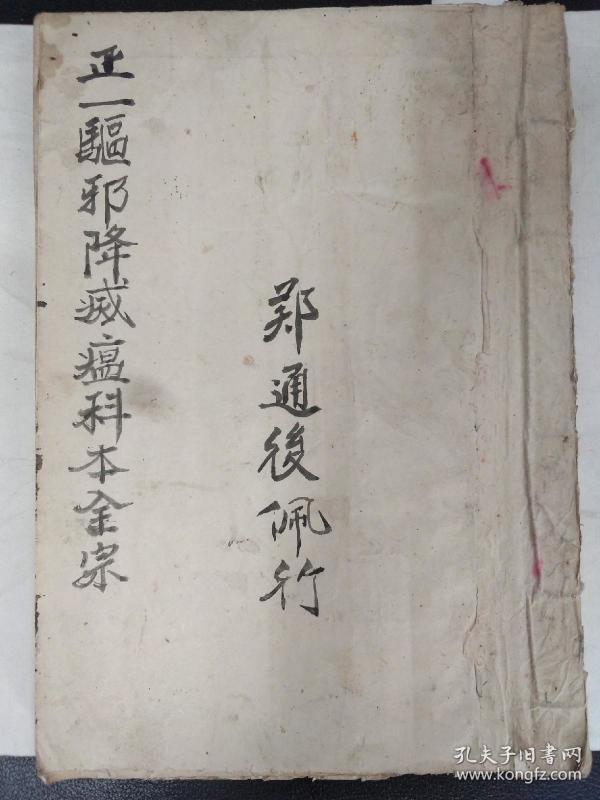 正一驅邪降威瘟科本全宗
郑通後佩行
孔夫子旧书网
www.kongfz.com